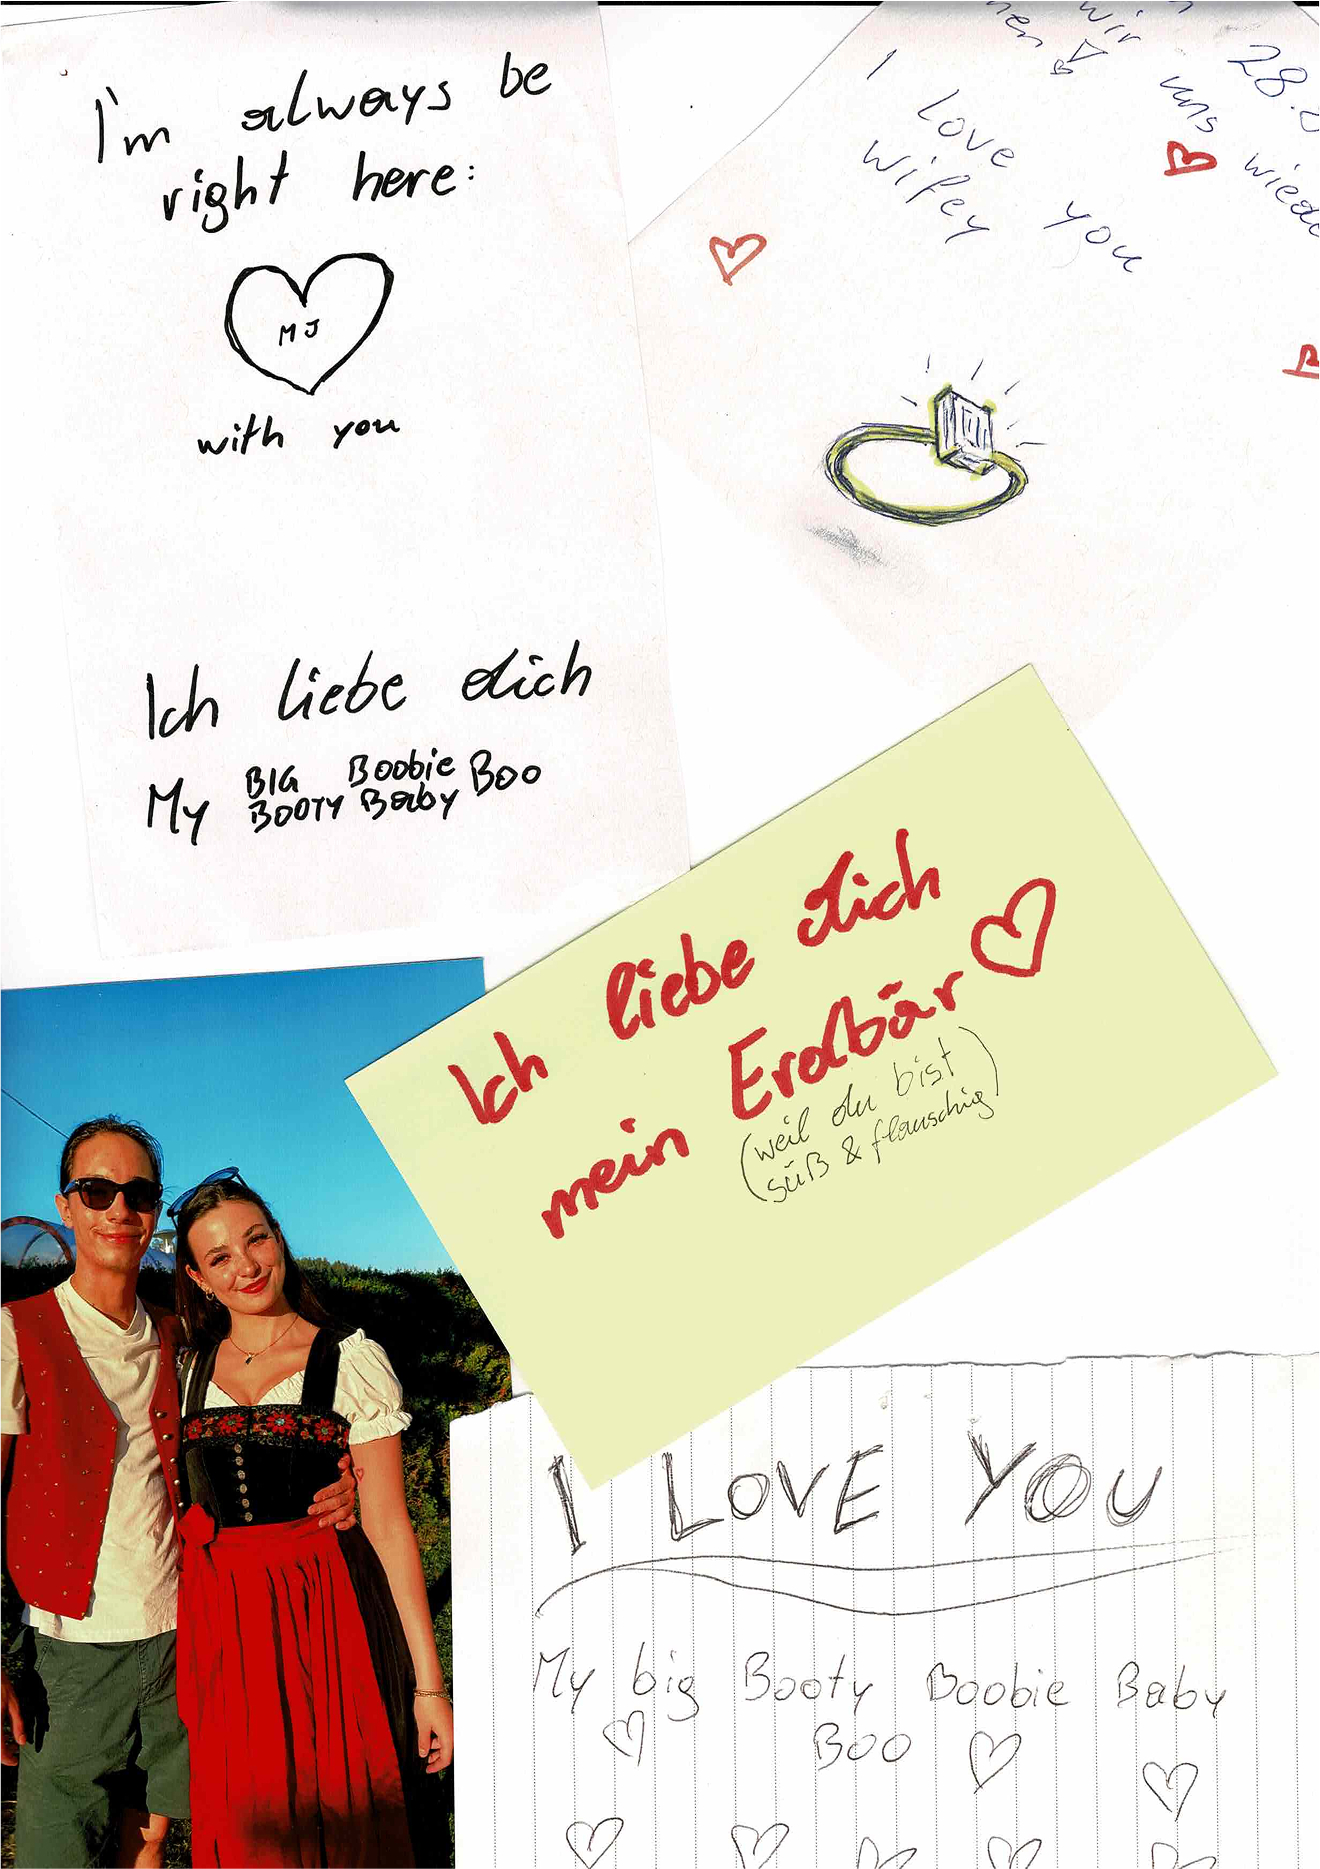 I'm always be
right here:
MJ
with you
Ich liebe dich
My BIG Boobie Boo
BOOTY Baby
wir uns
28.
I love you
wifey
Ich liebe dich
mein Erdbär
(weil du bist
süß & flauschig)
I LOVE YOU
My big Booty Boobie Baby
Boo